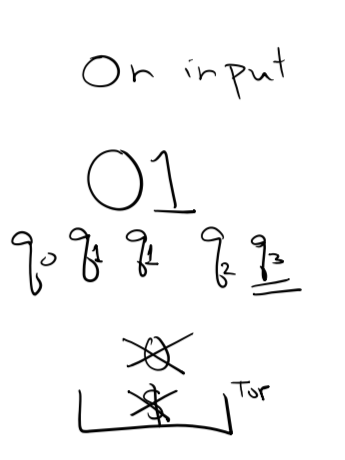 On input
01
q0 q1 q1 q2 q3
0
$
Top